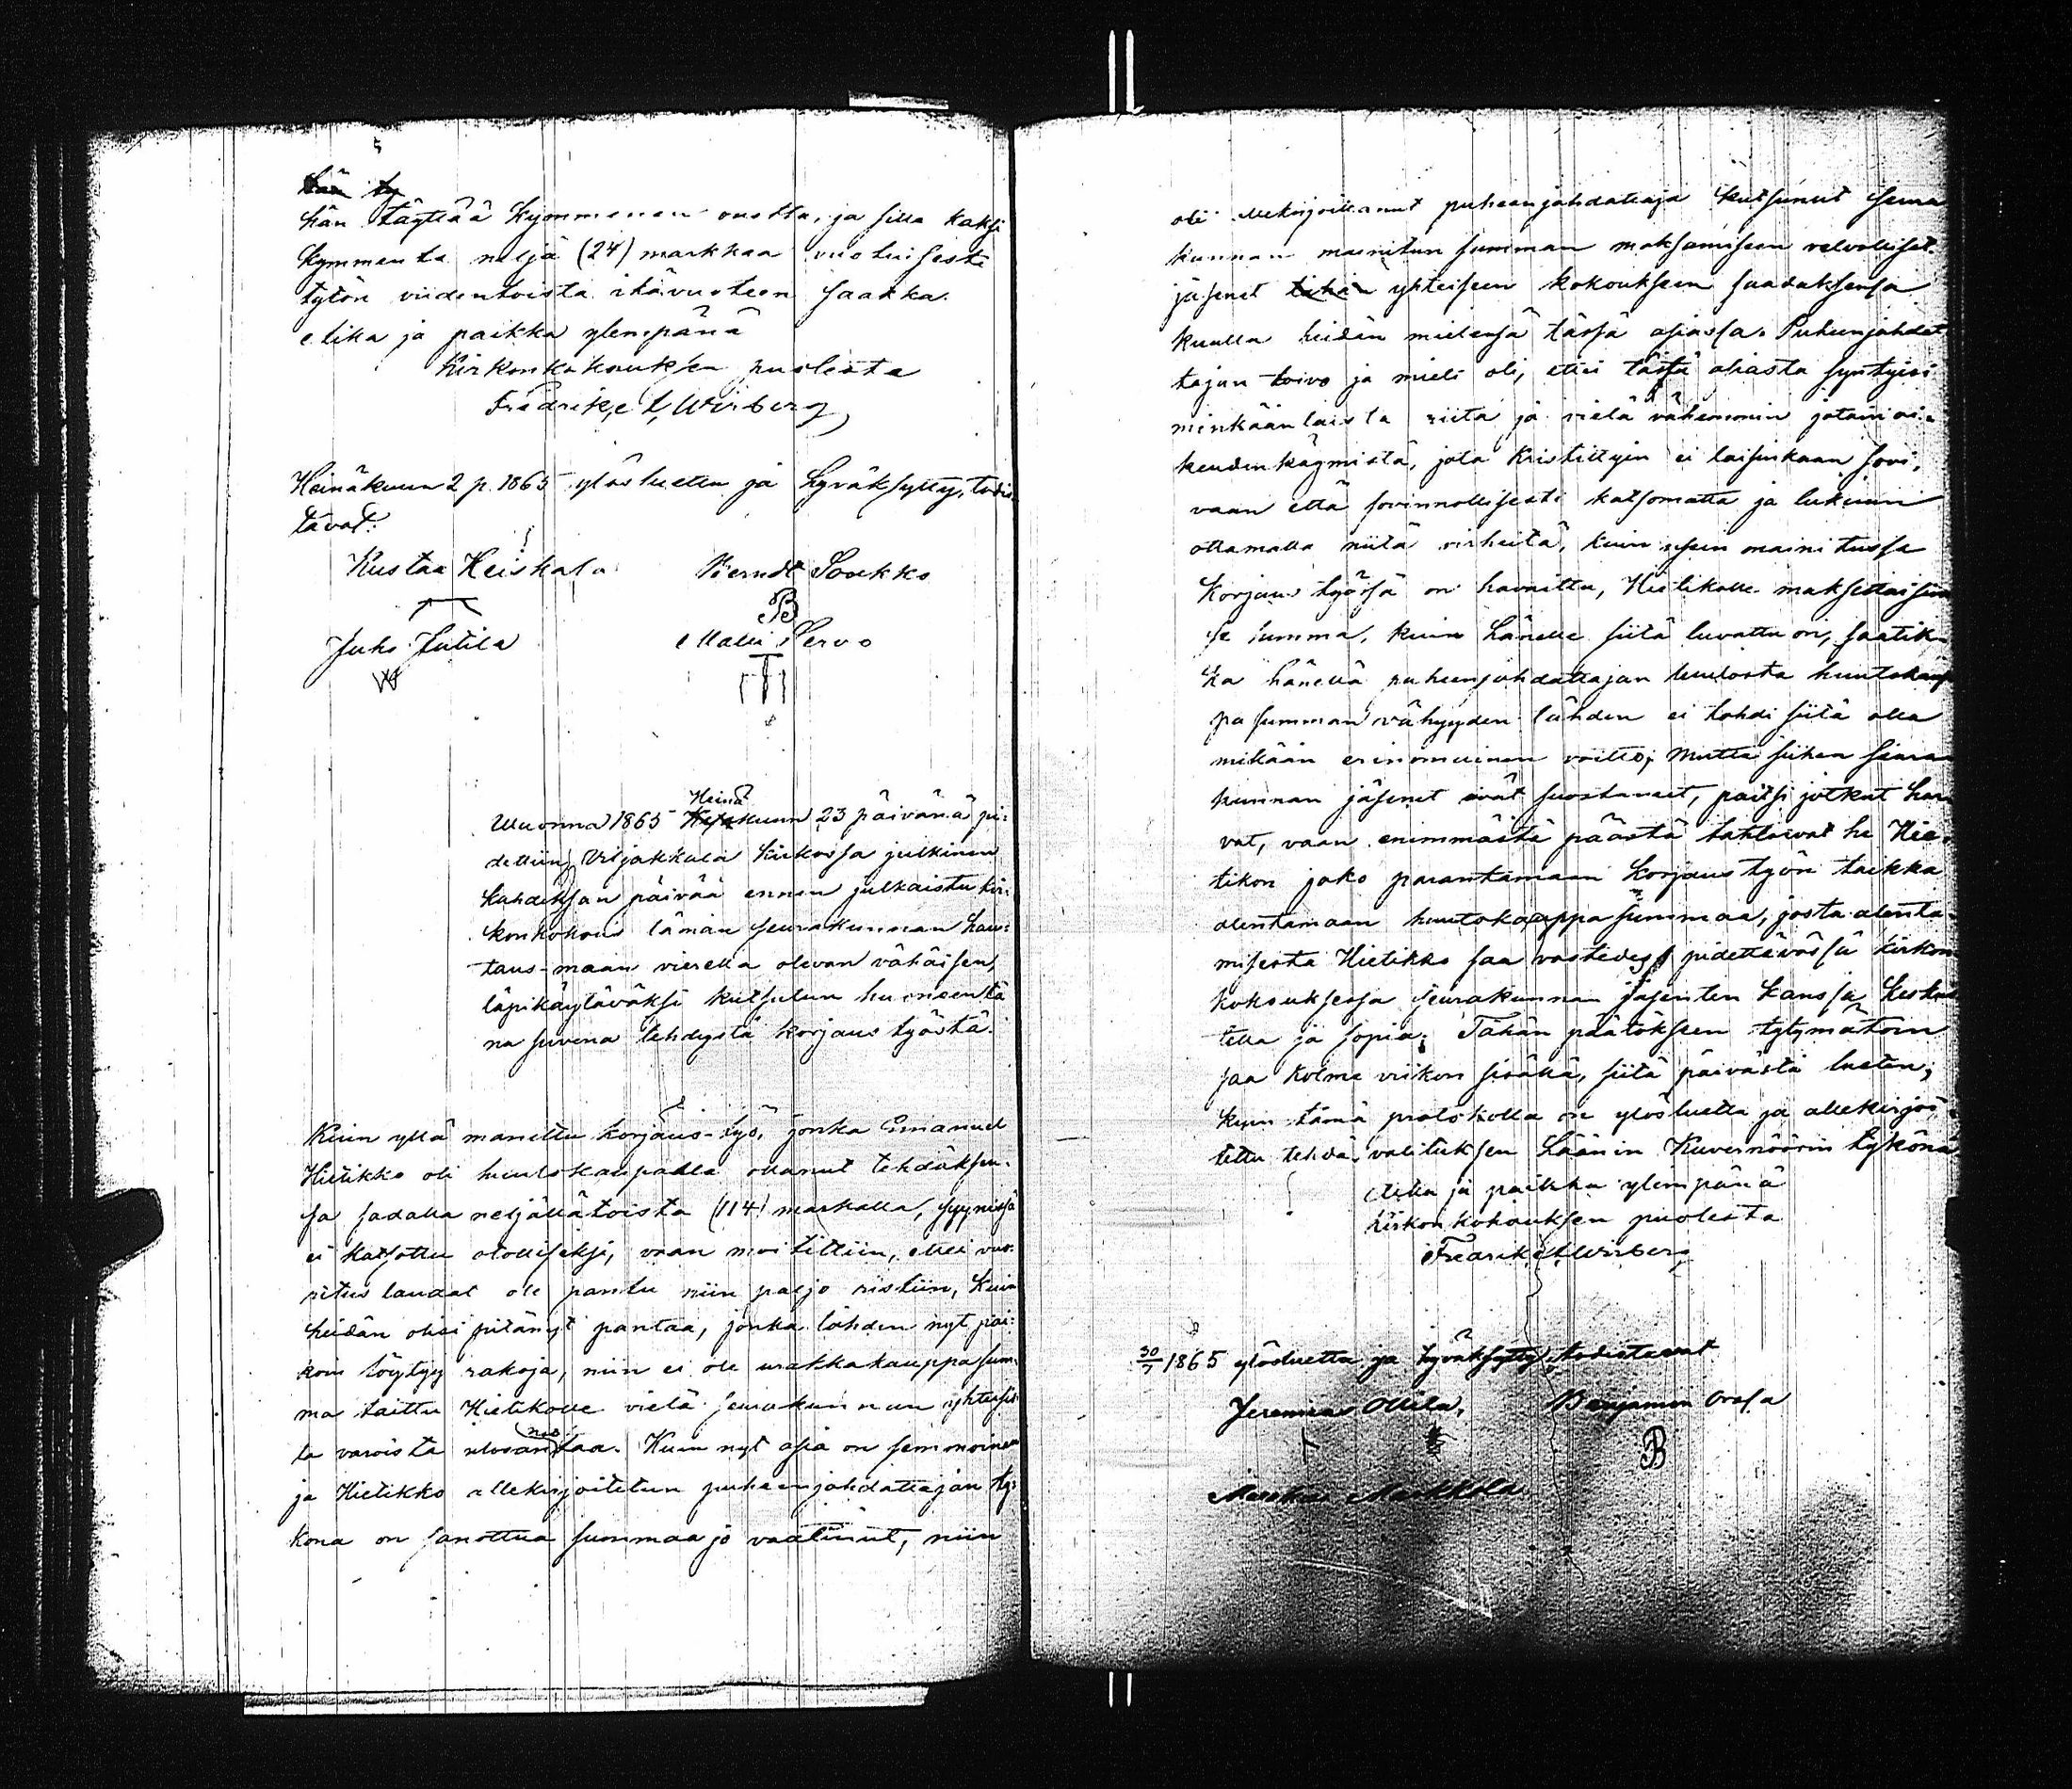 hän täyttää kymmenen vuotta, ja sillä kaksi
kymmentä neljä (24) markkaa vuotuisesti
tytön viidentoista ikävuoteen saakka.
Aika ja paikka ylempänä
Kirkonkokouksen puolesta
Fredrik et. Wirberg
Heinäkuun 2 p. 1865 ylösluettu ja hyväksytty, todis
tavat:
Kustaa Heiskala Berndt Soukko
B
Juho Jutila Matti Pervo
Vuonna 1865 Heinäkuun 23 päivänä pi:
dettiin Viljakkala kirkossa julkinen
kahdeksan päivää ennen julkaistu kir:
konkokous tämän seurakunnan hau:
taus-maan vierellä olevan vähäisen,
läpikäytäväksi kutsutun huoneen tä
nä suvena tehdystä korjaus työstä.
Kuin yllä manittu korjaus-työ, jonka Emanuel
Hietikko oli huutokaupalla ottanut tehdäksen:
sä sadalla neljällätoista (114) markalla, syynissä
ei katsottu otolliseksi, vaan moitittiin, ettei vuo:
ritus laudat ole pantu niin paljo ristiin, kuin
heidän olisi pitänyt pantaa, jonka tähden nyt pai:
koin löytyy rakoja, niin ei ole urakkakauppa sum
ma taittu Hietikolle vielä seurakunnan yhteisis
tä varoista ulosantaa. Kuin nyt asia on semmoinen
ja Hietikko allekirjoitetun puheenjohdattajan ty:
könä on sanottua summaa jo vaatinut, niin
oli allekirjoittanut puheenjohdattaja kutsunut seura
kunnan mainitun summan maksamiseen velvolliset
jäsenet yhteiseen kokoukseen saadaksensa
kuulla heidän mielensä tässä asiassa. Puheenjohdat
tajan toivo ja mieli oli, ettei tästä asiasta syntyisi
minkäänlaista riitaa ja vielä vähemmin jotain oi:
keudenkäymistä, jota Kristittyin ei laisinkaan sovi,
vaan että sovinnollisesti katsomatta ja lukuun
ottamatta niitä virheitä, kuin usein mainitussa
korjaus työssä on havaittu, Hietikolle maksettaisiin
se summa, kuin hänelle siitä luvattu on, saatik
ka hänellä puheenjohdattajan luulosta huutokaup
pa summan vähyyden tähden ei tohdi siitä olla
mikään erinomainen voitto; mutta siihen seura
kunnan jäsenet eivät suostuneet, paitsi jotkut har
vat, vaan enimmästä päästä tahtoivat he Hie:
tikon joko parantamaan korjaus työn taikka
alentamaan huutokauppa summaa, josta alenta:
misesta Hietikko saa vastedes pidettävässä kirkon
kokouksessa seurakunnan jäsenten kanssa keskus
tella ja sopia. Tähän päätökseen tytymätöin
saa kolme viikon sisällä, siitä päivästä luetan,
kuin tämä protokolla on ylösluettu ja allekirjoi:
tettu tehdä valituksen Läänin Kuvernöörin tykönä
Aika ja paikka ylempänä
kirkon kokouksen puolesta
Fredrik et. Wirberg
30/7 1865 ylösluettu ja hyväksytty, todistavat
Jeremias Ollila, Benjamin Orasa
B
Markkola